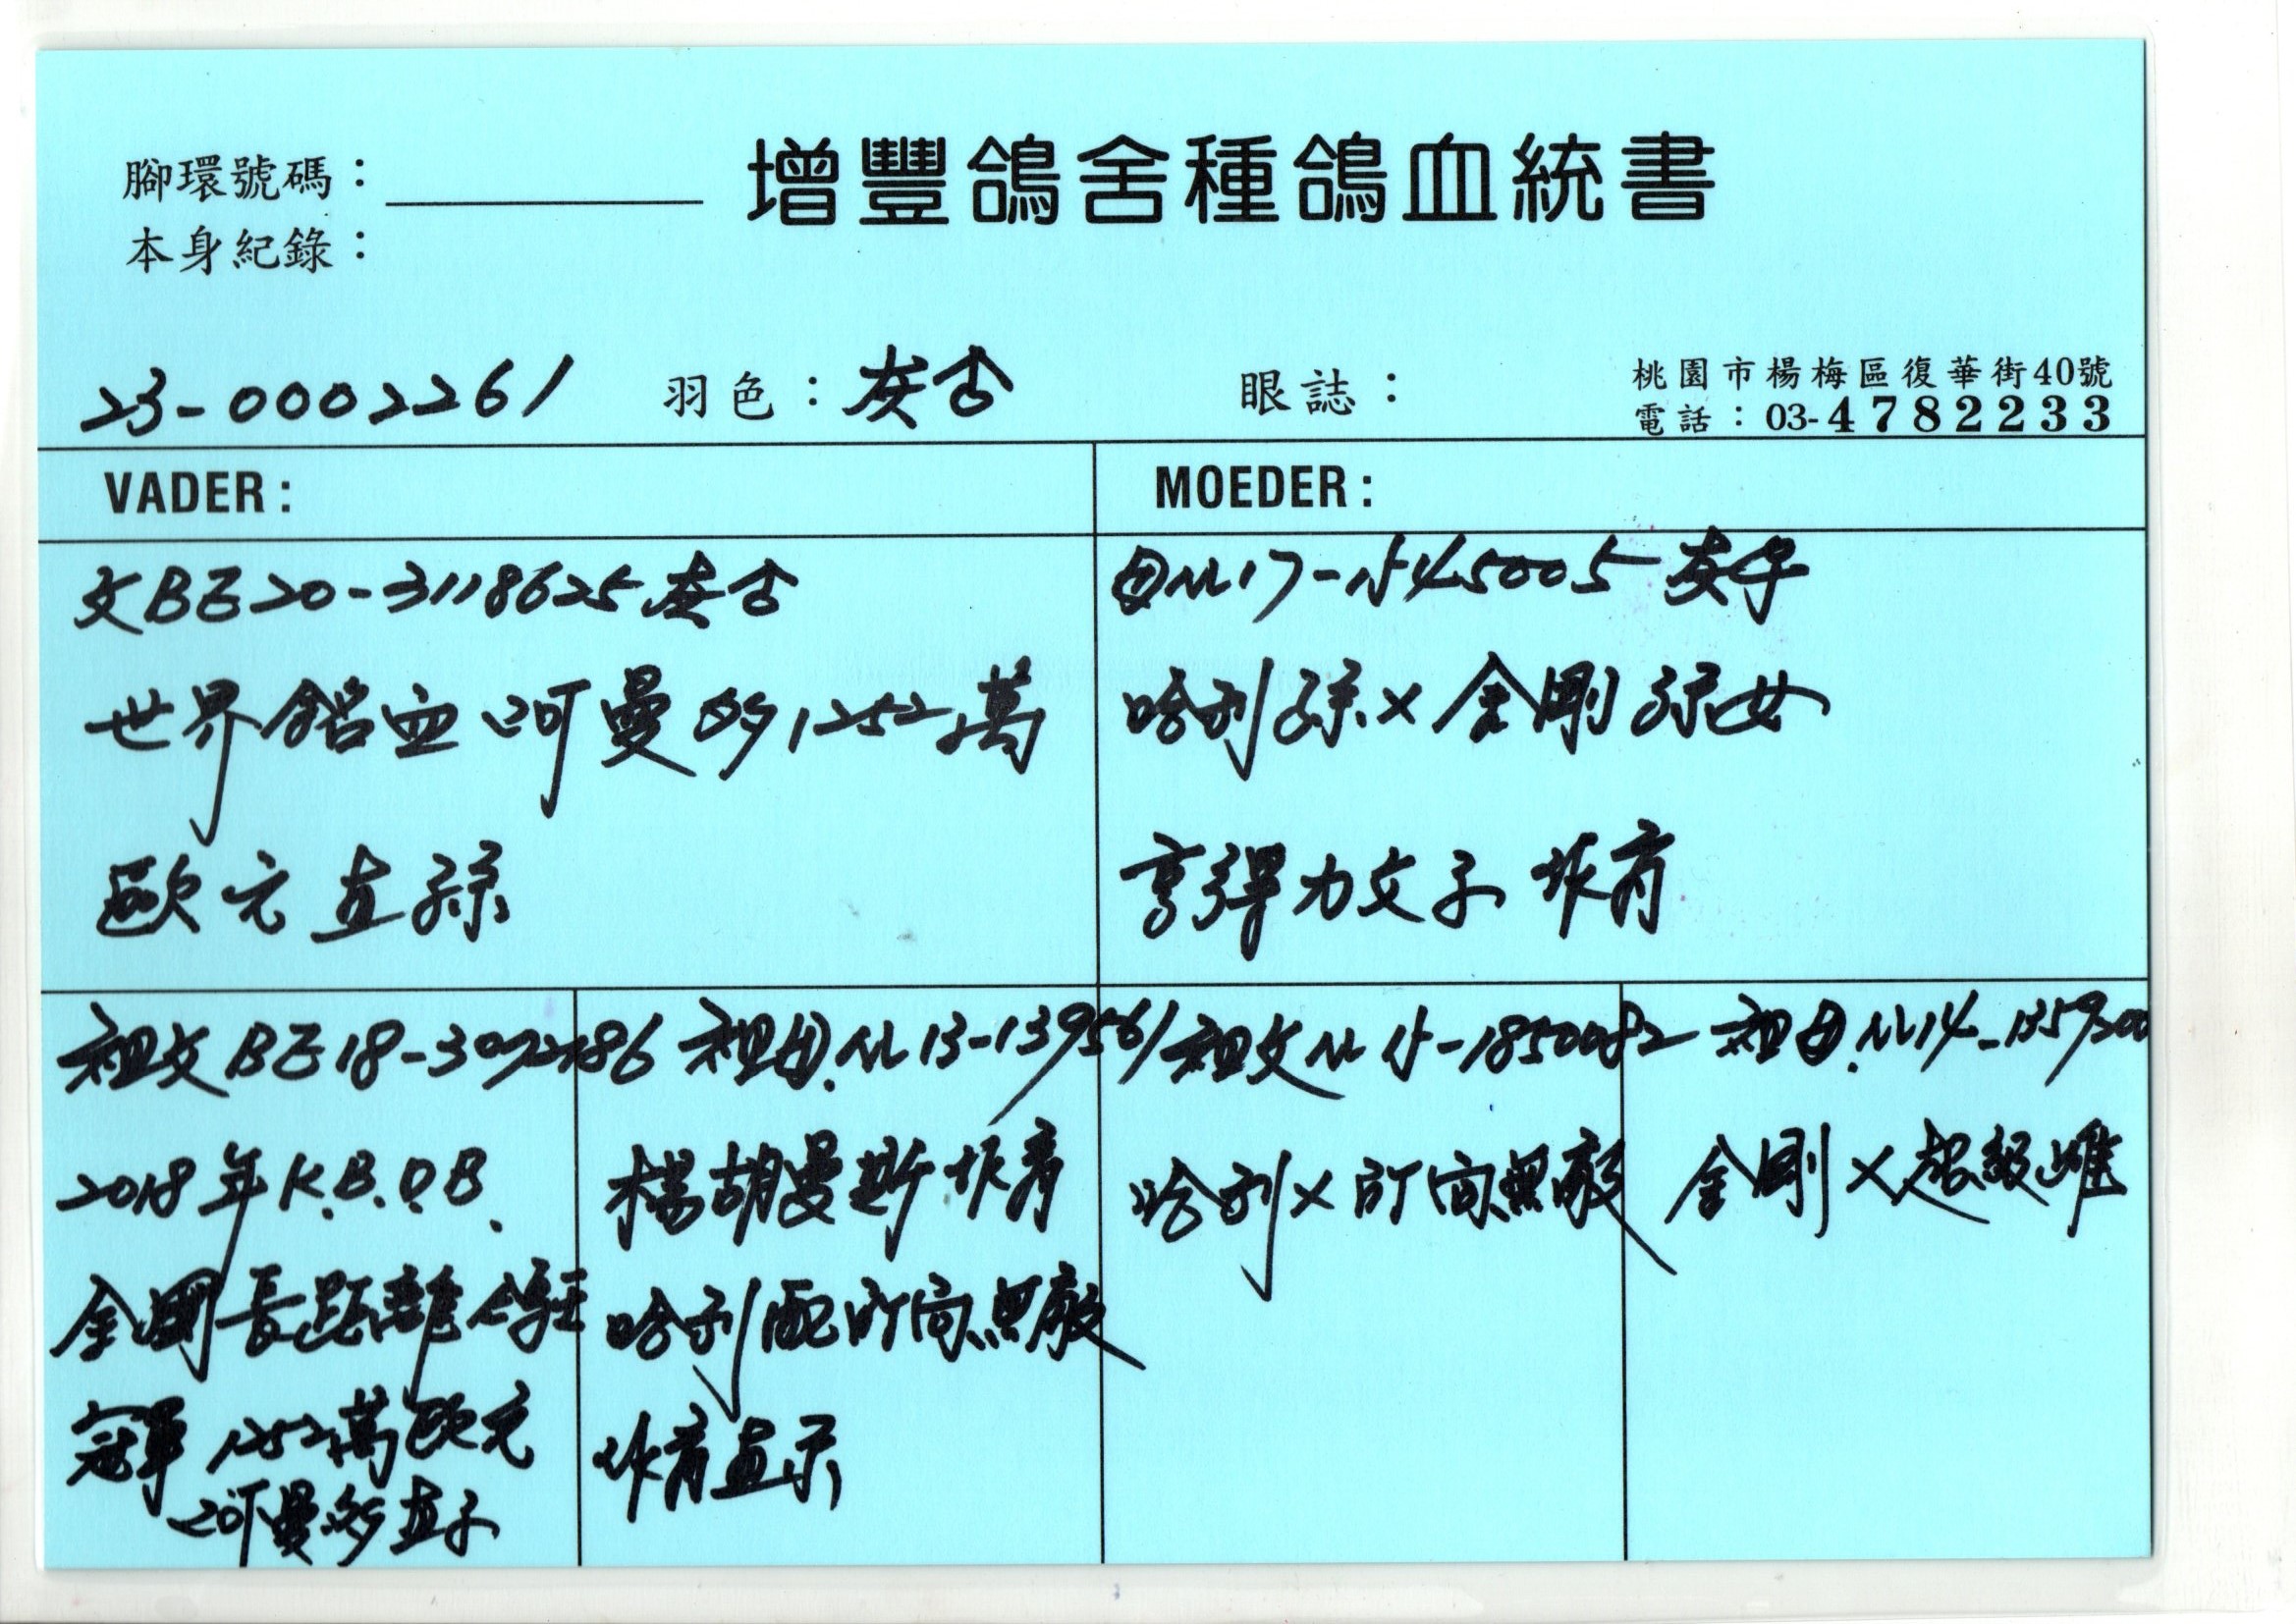 增豐鴿舍種鴿血統書
腳環號碼：
本身紀錄：
23-0002261
羽色：灰古
眼誌：
桃園市楊梅區復華街40號
電話：03-4782233
VADER:
父BE20-3118625灰古
世界銘血阿曼多1252萬
歐元直孫
MOEDER:
母NL17-1545005灰
哈利孫×金剛孫女
亨彈力父子作育
祖父BE18-3072186
2018年K.B.D.B.
全國長距離鴿王
冠軍1252萬歐元
阿曼多直子
祖母.NL13-1395561
楊胡曼斯作育
哈利配所向無敵
作育直系
祖父NL15-1850082
哈利×所向無敵
祖母.NL14-1359200
金剛×超級雌